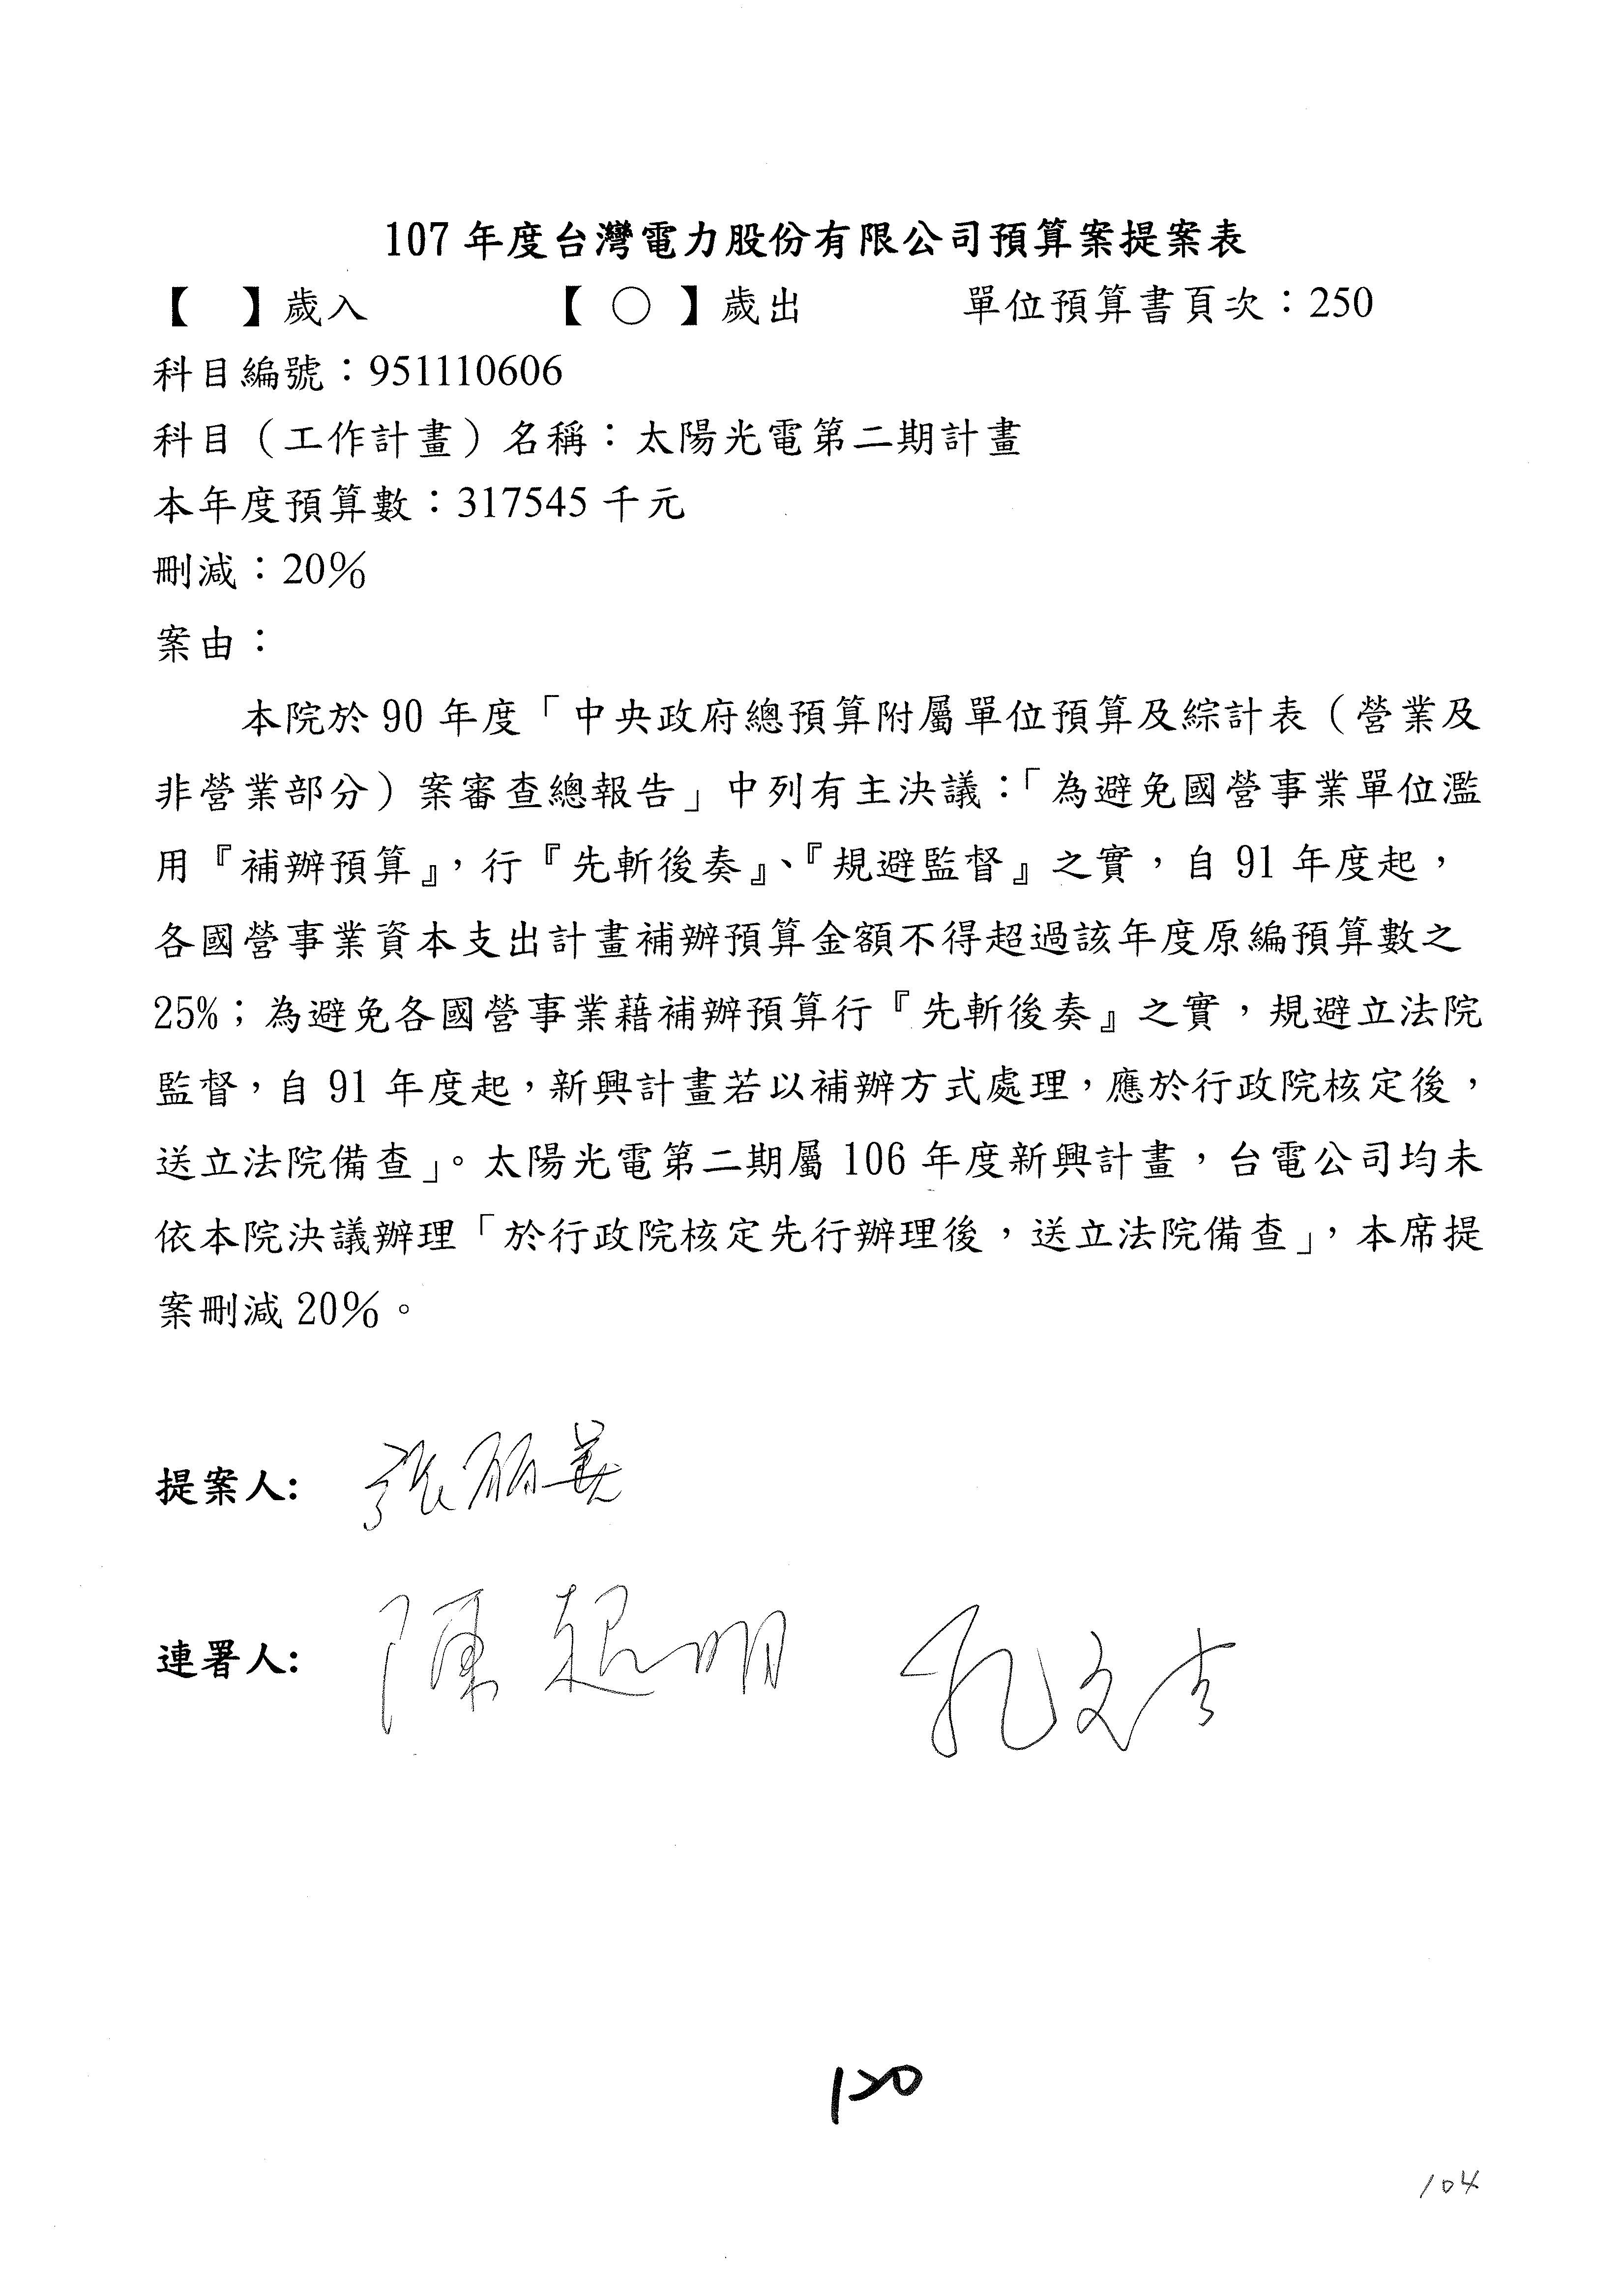 107 年度台灣電力股份有限公司預算案提案表
【　】歲入　【 ○ 】歲出　單位預算書頁次：250
科目編號：951110606
科目（工作計畫）名稱：太陽光電第二期計畫
本年度預算數：317545 千元
刪減：20％
案由：
本院於 90 年度「中央政府總預算附屬單位預算及綜計表（營業及
非營業部分）案審查總報告」中列有主決議：「為避免國營事業單位濫
用『補辦預算』，行『先斬後奏』、『規避監督』之實，自 91 年度起，
各國營事業資本支出計畫補辦預算金額不得超過該年度原編預算數之
25%；為避免各國營事業藉補辦預算行『先斬後奏』之實，規避立法院
監督，自 91 年度起，新興計畫若以補辦方式處理，應於行政院核定後，
送立法院備查」。太陽光電第二期屬 106 年度新興計畫，台電公司均未
依本院決議辦理「於行政院核定先行辦理後，送立法院備查」，本席提
案刪減 20％。
提案人: 張麗善
連署人: 陳超明 孔文吉
120
104